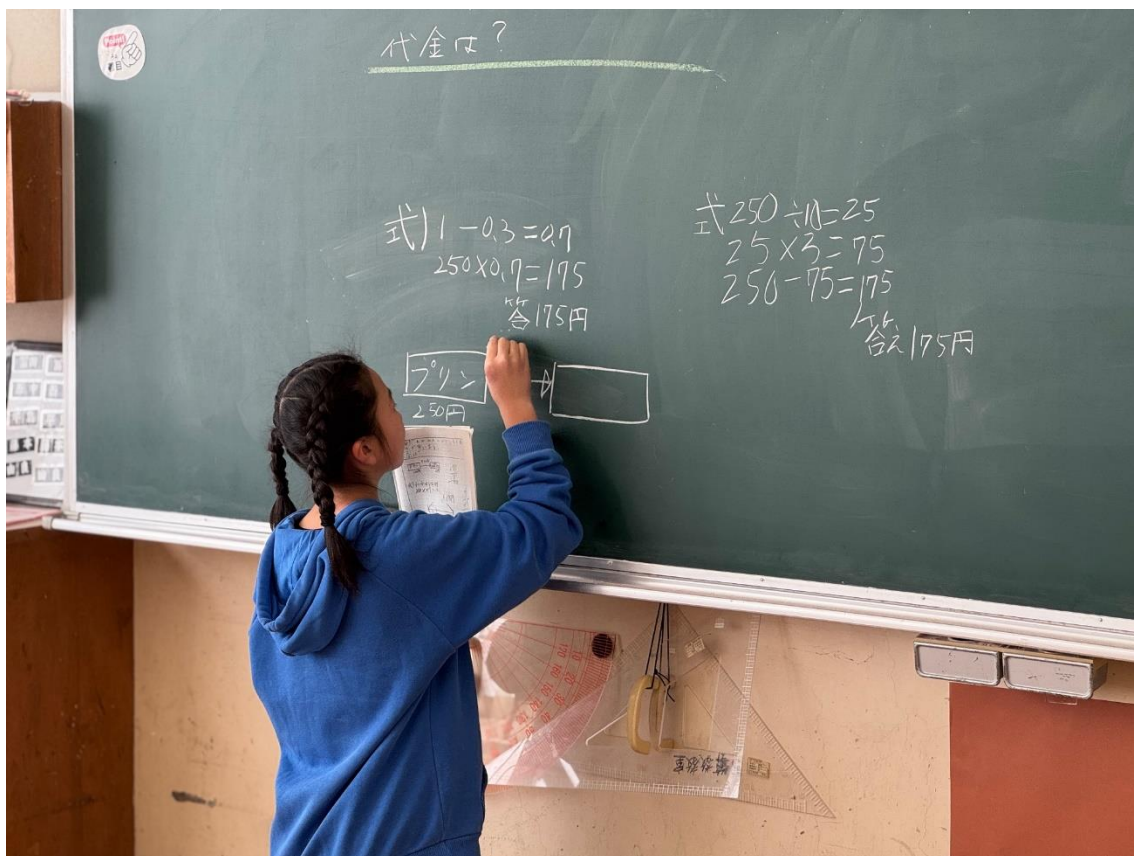 代金は?
式) 1-0.3=0.7
250×0.7=175
答175円
プリン
250円
式 250÷10=25
25×3=75
250-75=175
答え175円
算数教室